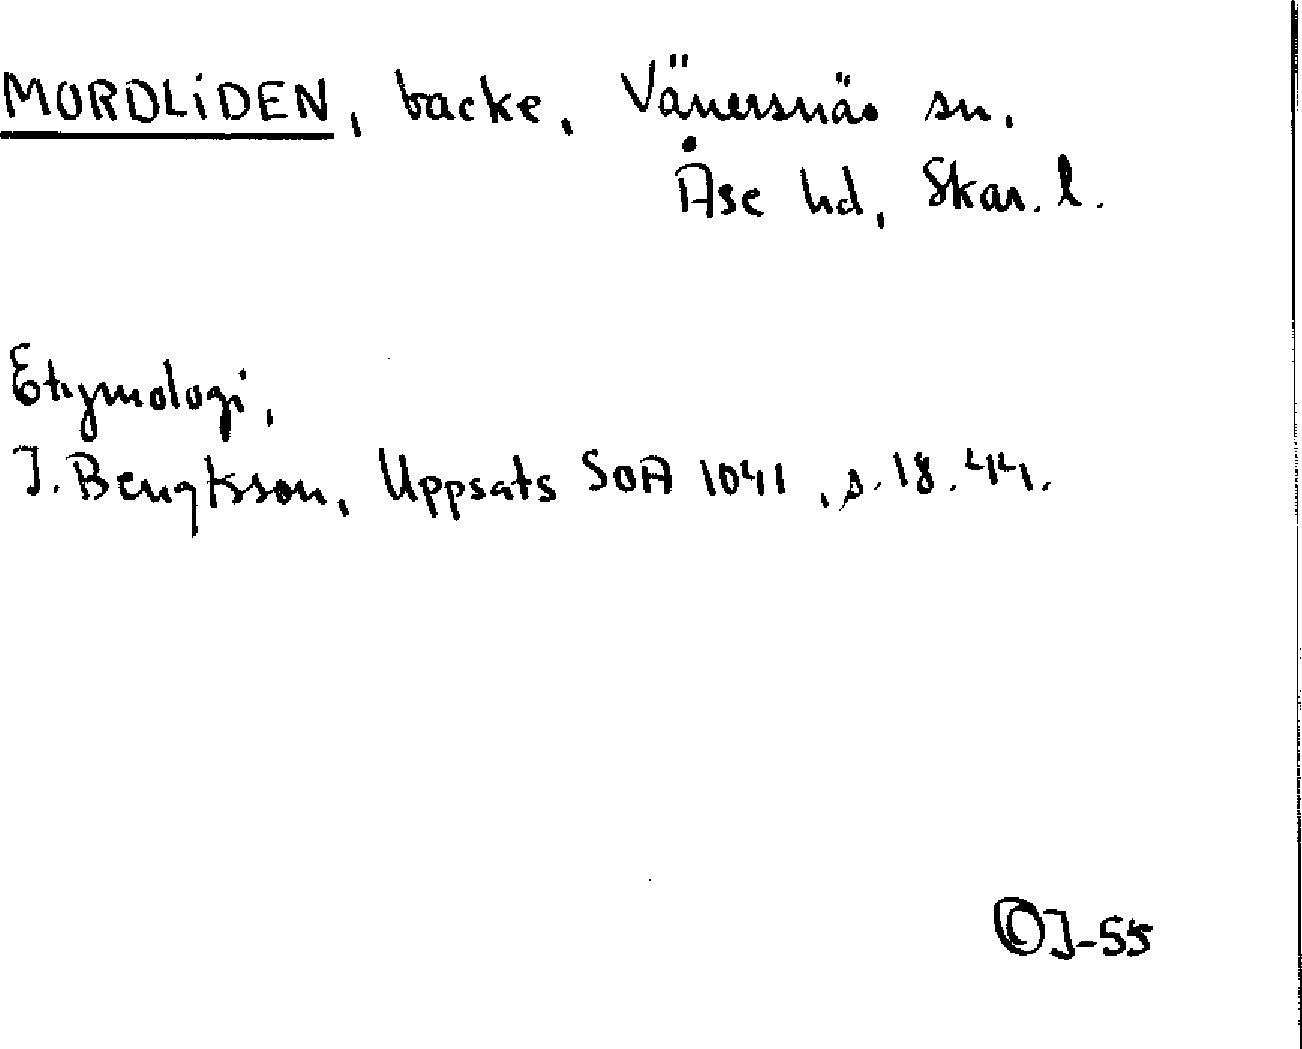 MORDLIDEN, backe, Vänersnäs sn.
Åse hd, Skar. l.
Etymologi,
J. Bengtsson, Uppsats SOA 1041, s. 18. 44.
OJ-55